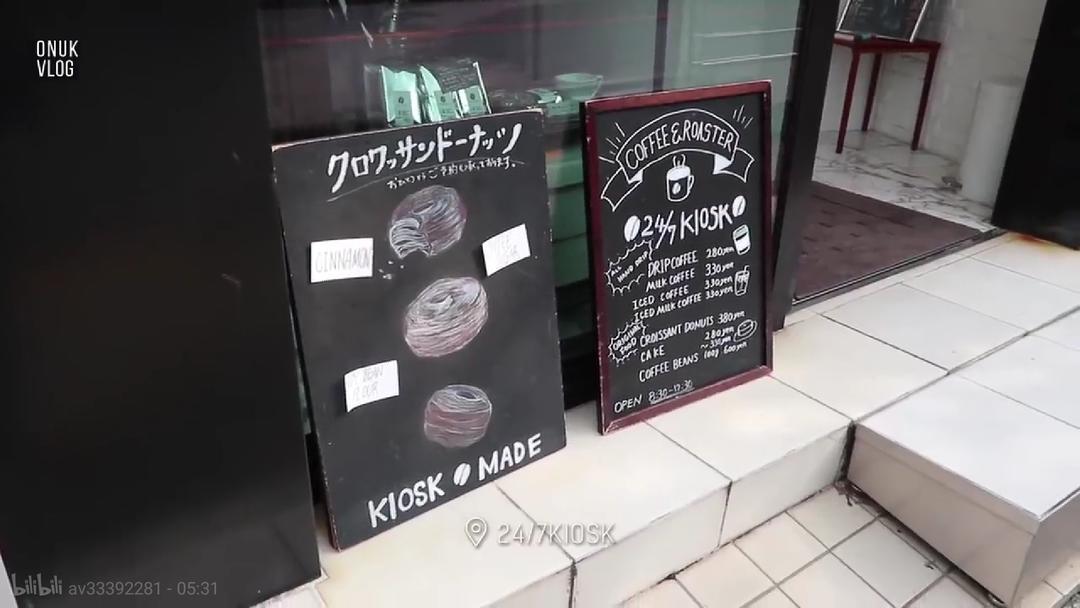 ONUK
VLOG
クロワッサンドーナッツ
CINNAMON
BEAN
KIOSK MADE
COFFEE & ROASTER
24/7 KIOSK
ALL
HAND DRIP
DRIP COFFEE 280yen
MILK COFFEE 330yen
ICED COFFEE 330yen
ICED MILK COFFEE 330yen
ORIGINAL
FOOD
CROISSANT DONUTS 380yen
CAKE 280yen
~330yen
COFFEE BEANS 100g 600yen
OPEN 8:30-17:30
24/7KIOSK
bilibili av33392281 - 05:31